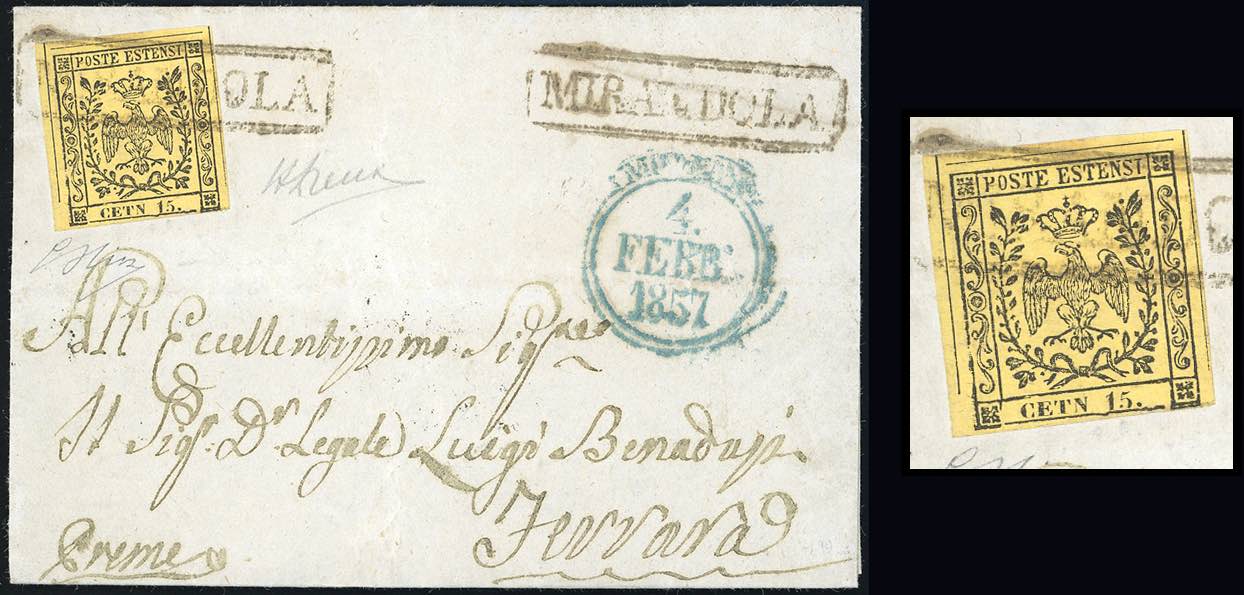 POSTE ESTENSI
CETN 15.
OLA
MIRANDOLA
4.
FEBB.
1857
All' Eccellentissimo Sig.re
Il Sig.r D.r Legale Luigi
Ferrara
Preme
POSTE ESTENSI
CETN 15.